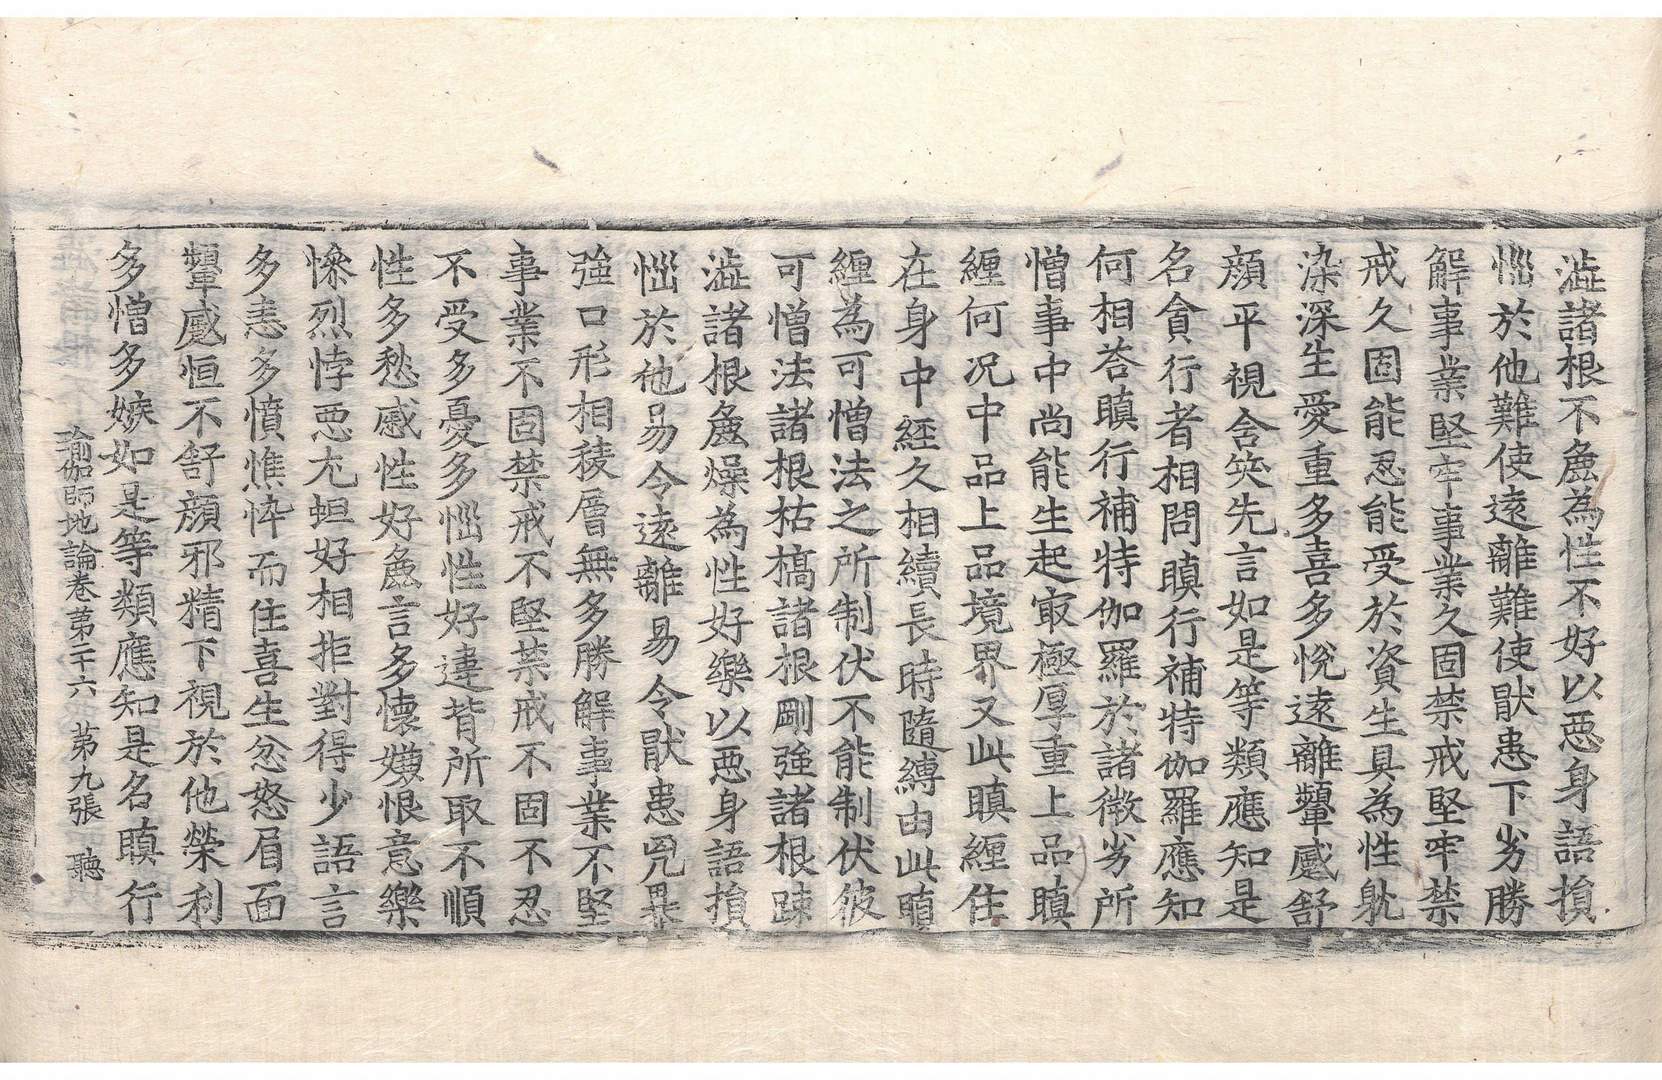 澁諸根不麁為性不好以惡身語損
惱於他難使遠離難使猒患下劣勝
解事業堅牢事業久固禁戒堅牢禁
戒久固能忍能受於資生具為性躭
染深生愛重多喜多悅遠離顰慼舒
顔平視含笑先言如是等類應知是
名貪行者相問瞋行補特伽羅應知
何相荅瞋行補特伽羅於諸微劣所
憎事中尚能生起㝡極厚重上品瞋
纏何况中品上品境界又此瞋纏住
在身中經久相續長時隨縛由此瞋
纏為可憎法之所制伏不能制伏彼
可憎法諸根枯槁諸根剛強諸根踈
澁諸根麁燥為性好樂以惡身語損
惱於他易令遠離易令猒患兇暴
強口形相稜層無多勝解事業不堅
事業不固禁戒不堅禁戒不固不忍
不受多憂多惱性好違背所取不順
性多愁慼性好麁言多懷嫌恨意樂
慘烈悖惡尤蛆好相拒對得少語言
多恚多憤憔悴而住喜生忿怒眉面
顰慼恒不舒顔邪精下視於他榮利
多憎多嫉如是等類應知是名瞋行
瑜伽師地論卷第二十六 第九張 聽